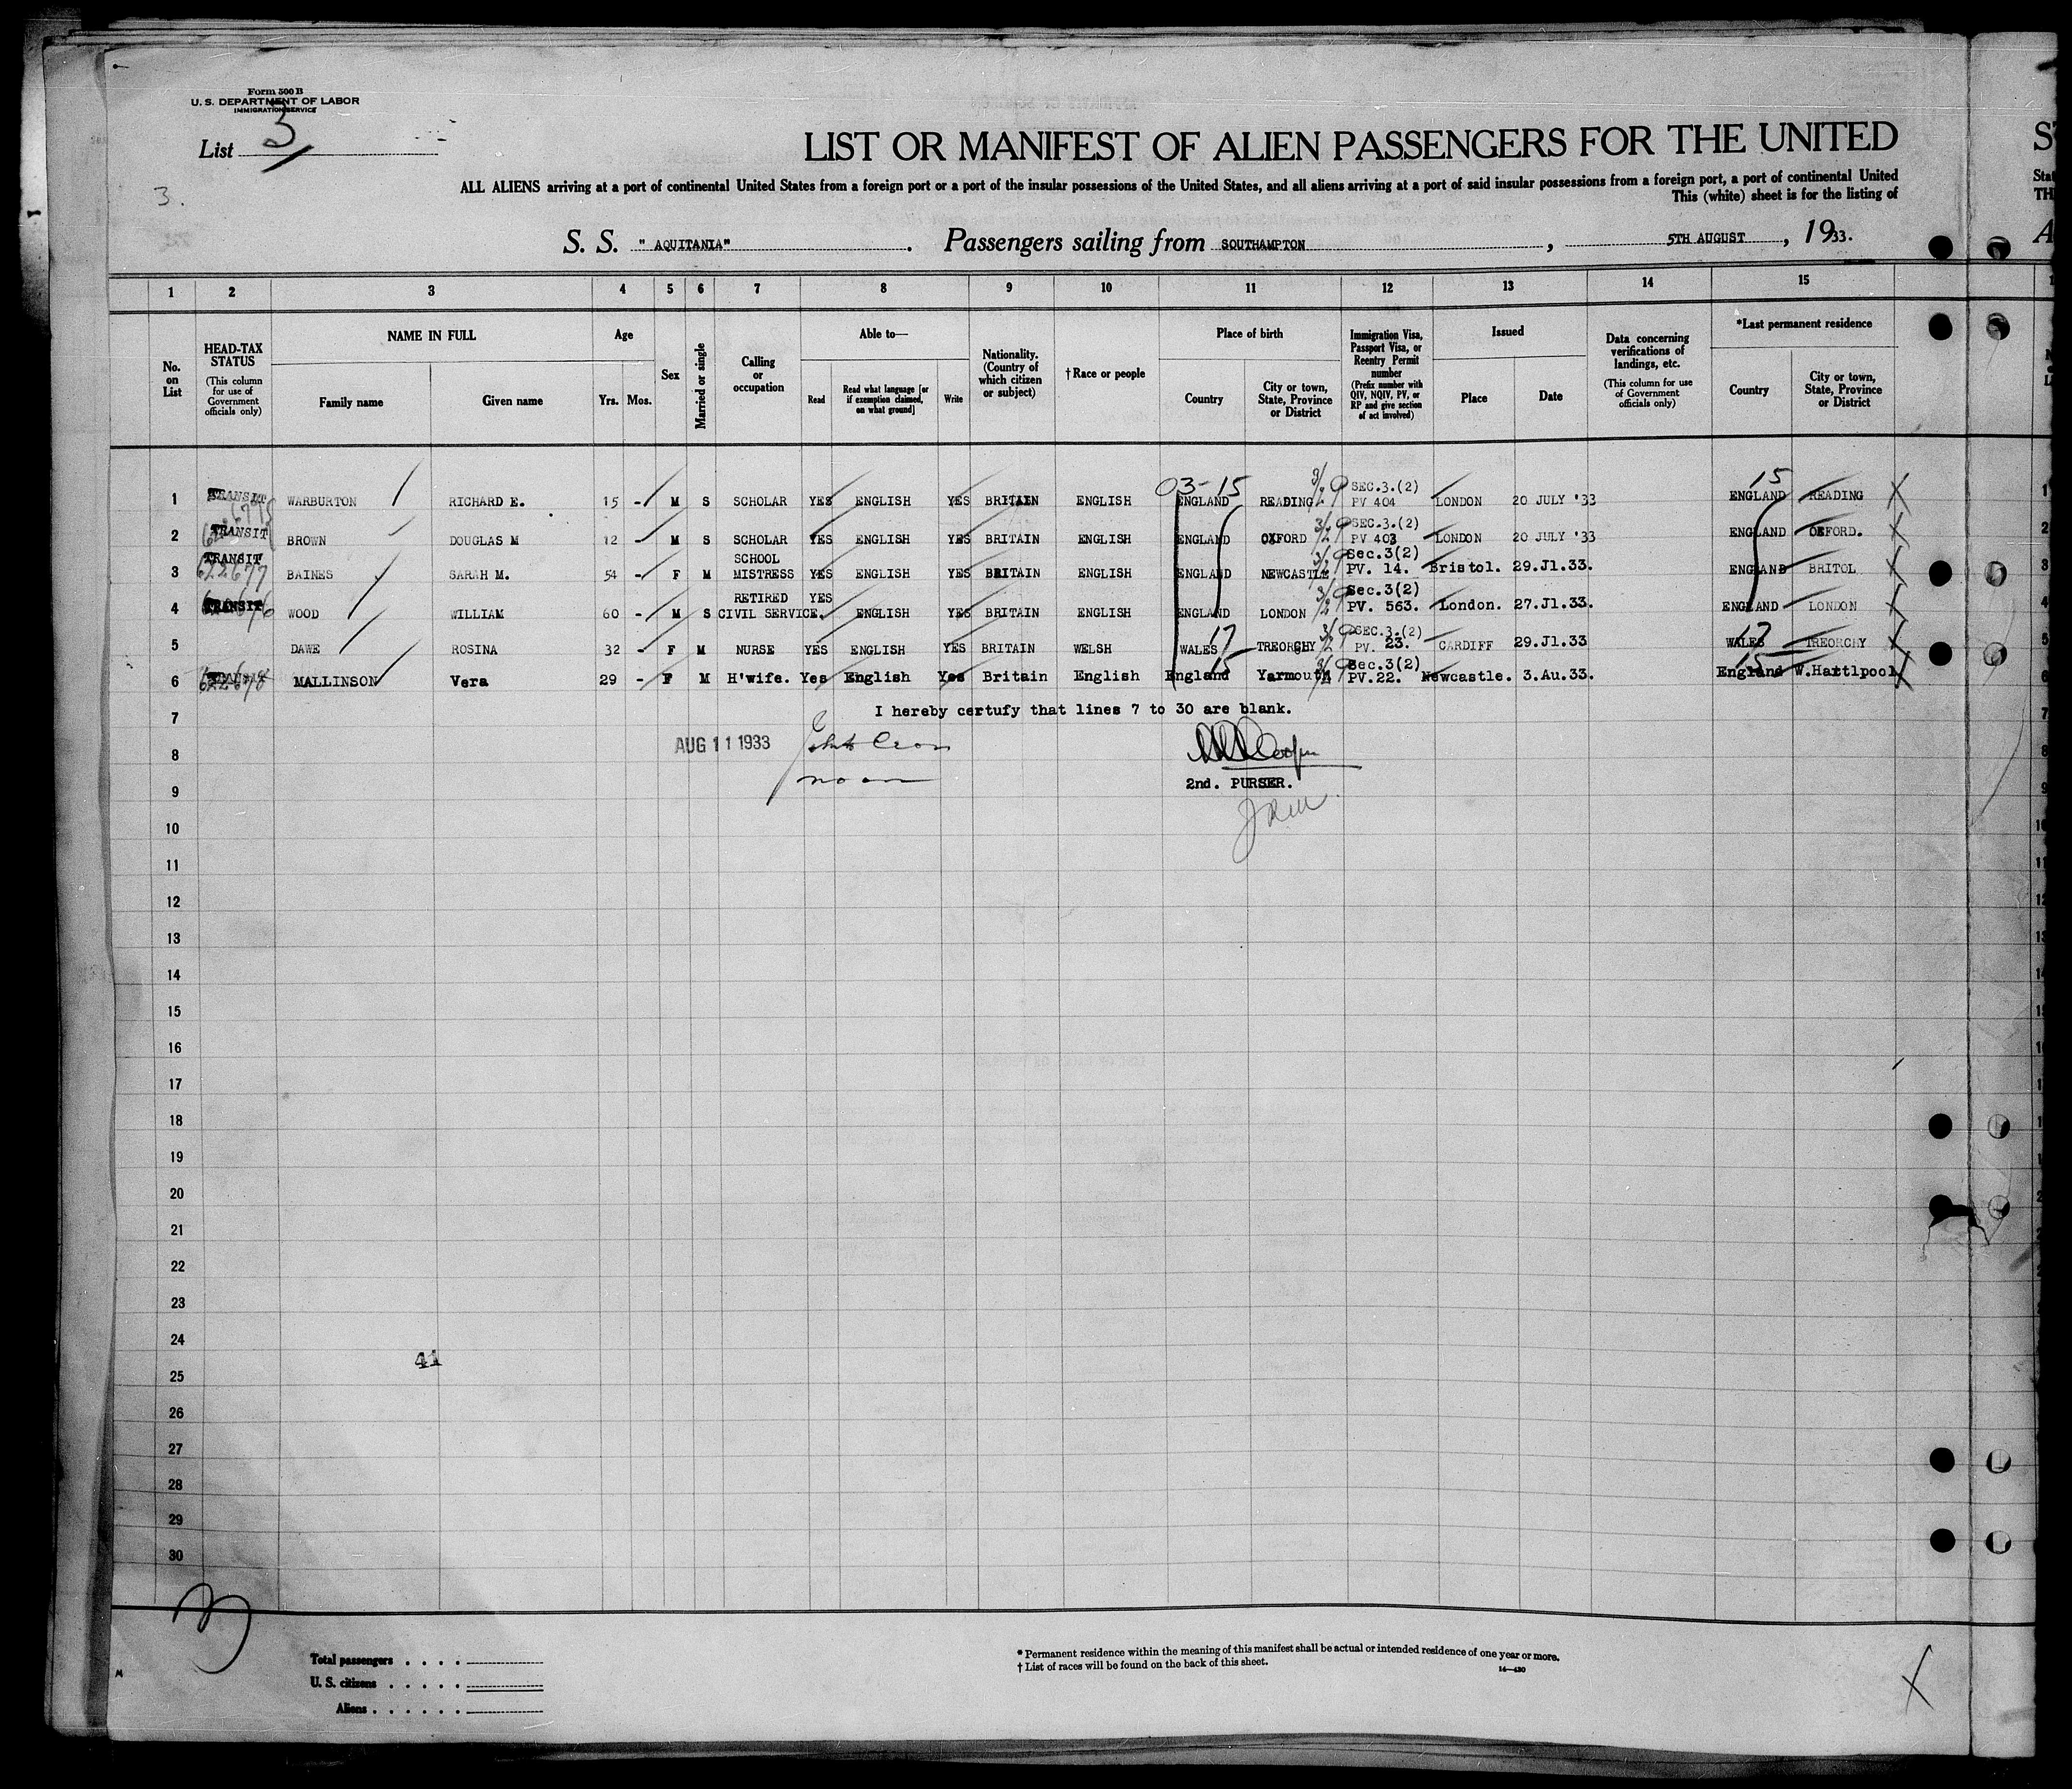 Form 500 B
U. S. DEPARTMENT OF LABOR
IMMIGRATION SERVICE
List 3
3.
LIST OR MANIFEST OF ALIEN PASSENGERS FOR THE UNITED
ALL ALIENS arriving at a port of continental United States from a foreign port or a port of the insular possessions of the United States, and all aliens arriving at a port of said insular possessions from a foreign port, a port of continental United
This (white) sheet is for the listing of
S. S. " AQUITANIA" . Passengers sailing from SOUTHAMPTON , 5TH AUGUST , 1933.
1 2 3 4 5 6 7 8 9 10 11 12 13 14 15
No. on List
HEAD-TAX STATUS (This column for use of Government officials only)
NAME IN FULL
Family name Given name
Age
Yrs. Mos.
Sex
Married or single
Calling or occupation
Able to—
Read Read what language [or if exemption claimed, on what ground] Write
Nationality. (Country of which citizen or subject)
† Race or people
Place of birth
Country City or town, State, Province or District
Immigration Visa, Passport Visa, or Reentry Permit number (Prefix number with QIV, NQIV, PV, or RP and give section of act involved)
Issued
Place Date
Data concerning verifications of landings, etc. (This column for use of Government officials only)
*Last permanent residence
Country City or town, State, Province or District
03-15 15
1 TRANSIT WARBURTON RICHARD E. 15 - M S SCHOLAR YES ENGLISH YES BRITAIN ENGLISH ENGLAND READING SEC.3.(2) PV 404 LONDON 20 JULY '33 ENGLAND READING
2 TRANSIT BROWN DOUGLAS M 12 - M S SCHOLAR YES ENGLISH YES BRITAIN ENGLISH ENGLAND OXFORD SEC.3.(2) PV 403 LONDON 20 JULY '33 ENGLAND OXFORD.
3 TRANSIT 622677 BAINES SARAH M. 54 - F M SCHOOL MISTRESS YES ENGLISH YES BRITAIN ENGLISH ENGLAND NEWCASTLE Sec.3(2) PV. 14. Bristol. 29.Jl.33. ENGLAND BRITOL
4 TRANSIT WOOD WILLIAM 60 - M S RETIRED CIVIL SERVICE. YES ENGLISH YES BRITAIN ENGLISH ENGLAND LONDON Sec.3(2) PV. 563. London. 27.Jl.33. ENGLAND LONDON
17 17
5 DAWE ROSINA 32 - F M NURSE YES ENGLISH YES BRITAIN WELSH WALES TREORCHY SEC.3.(2) PV. 23. CARDIFF 29.Jl.33 WALES TREORCHY
15 15
6 622678 MALLINSON Vera 29 - F M H'wife. Yes English Yes Britain English England Yarmouth Sec.3(2) PV.22. Newcastle. 3.Au.33. England W.Hartlpool
7 I hereby certufy that lines 7 to 30 are blank.
8 AUG 11 1933
9 2nd. PURSER.
10
11
12
13
14
15
16
17
18
19
20
21
22
23
24
41
25
26
27
28
29
30
Total passengers . . . .
U. S. citizens . . . . .
Aliens . . . . . .
* Permanent residence within the meaning of this manifest shall be actual or intended residence of one year or more.
† List of races will be found on the back of this sheet.
14—430